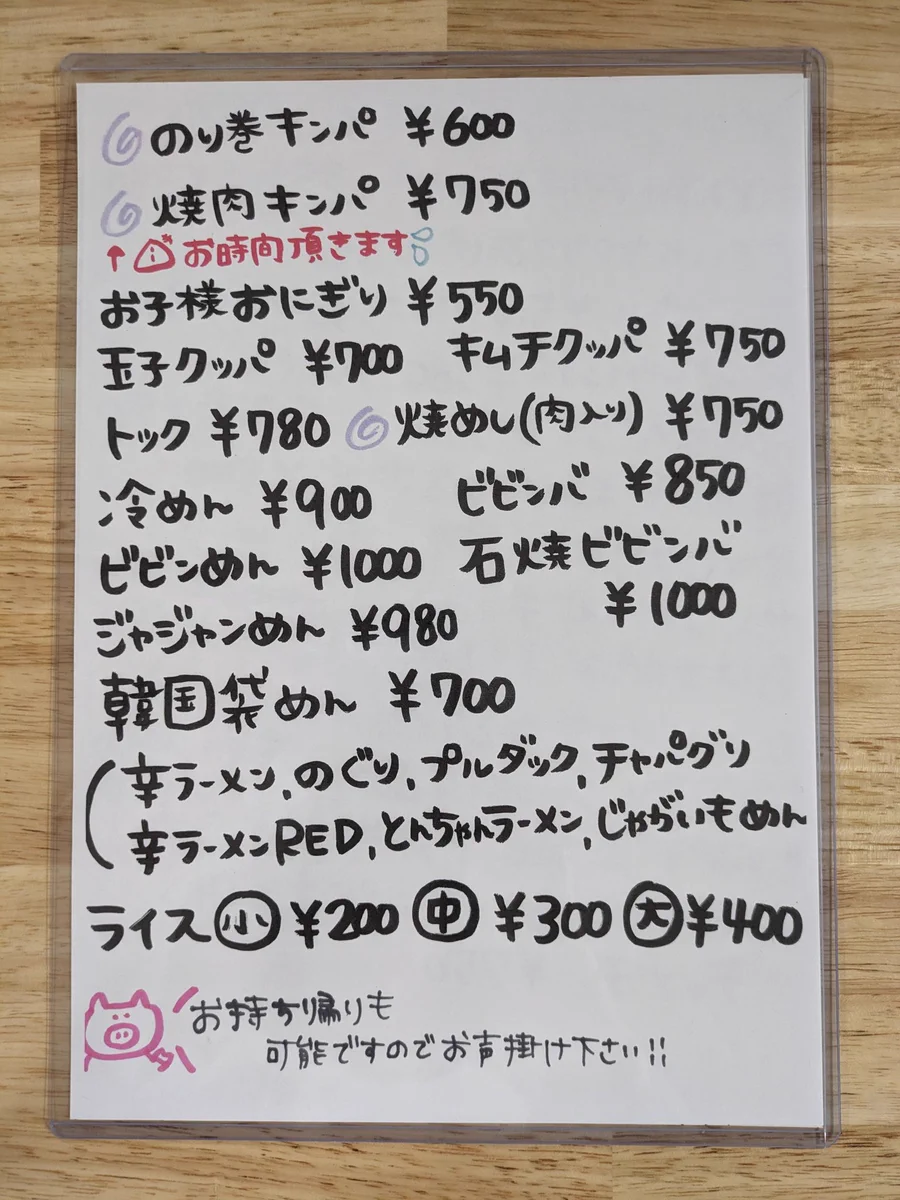 のり巻キンパ ¥600
焼肉キンパ ¥750
↑ お時間頂きます
お子様おにぎり ¥550
玉子クッパ ¥700 キムチクッパ ¥750
トック ¥780 焼めし(肉入り) ¥750
冷めん ¥900 ビビンバ ¥850
ビビンめん ¥1000 石焼ビビンバ
¥1000
ジャジャンめん ¥980
韓国袋めん ¥700
(辛ラーメン,のぐり,プルダック,チャパグリ
辛ラーメンRED,とんちゃんラーメン,じゃがいもめん
ライス 小 ¥200 中 ¥300 大 ¥400
お持ち帰りも
可能ですのでお声掛け下さい!!